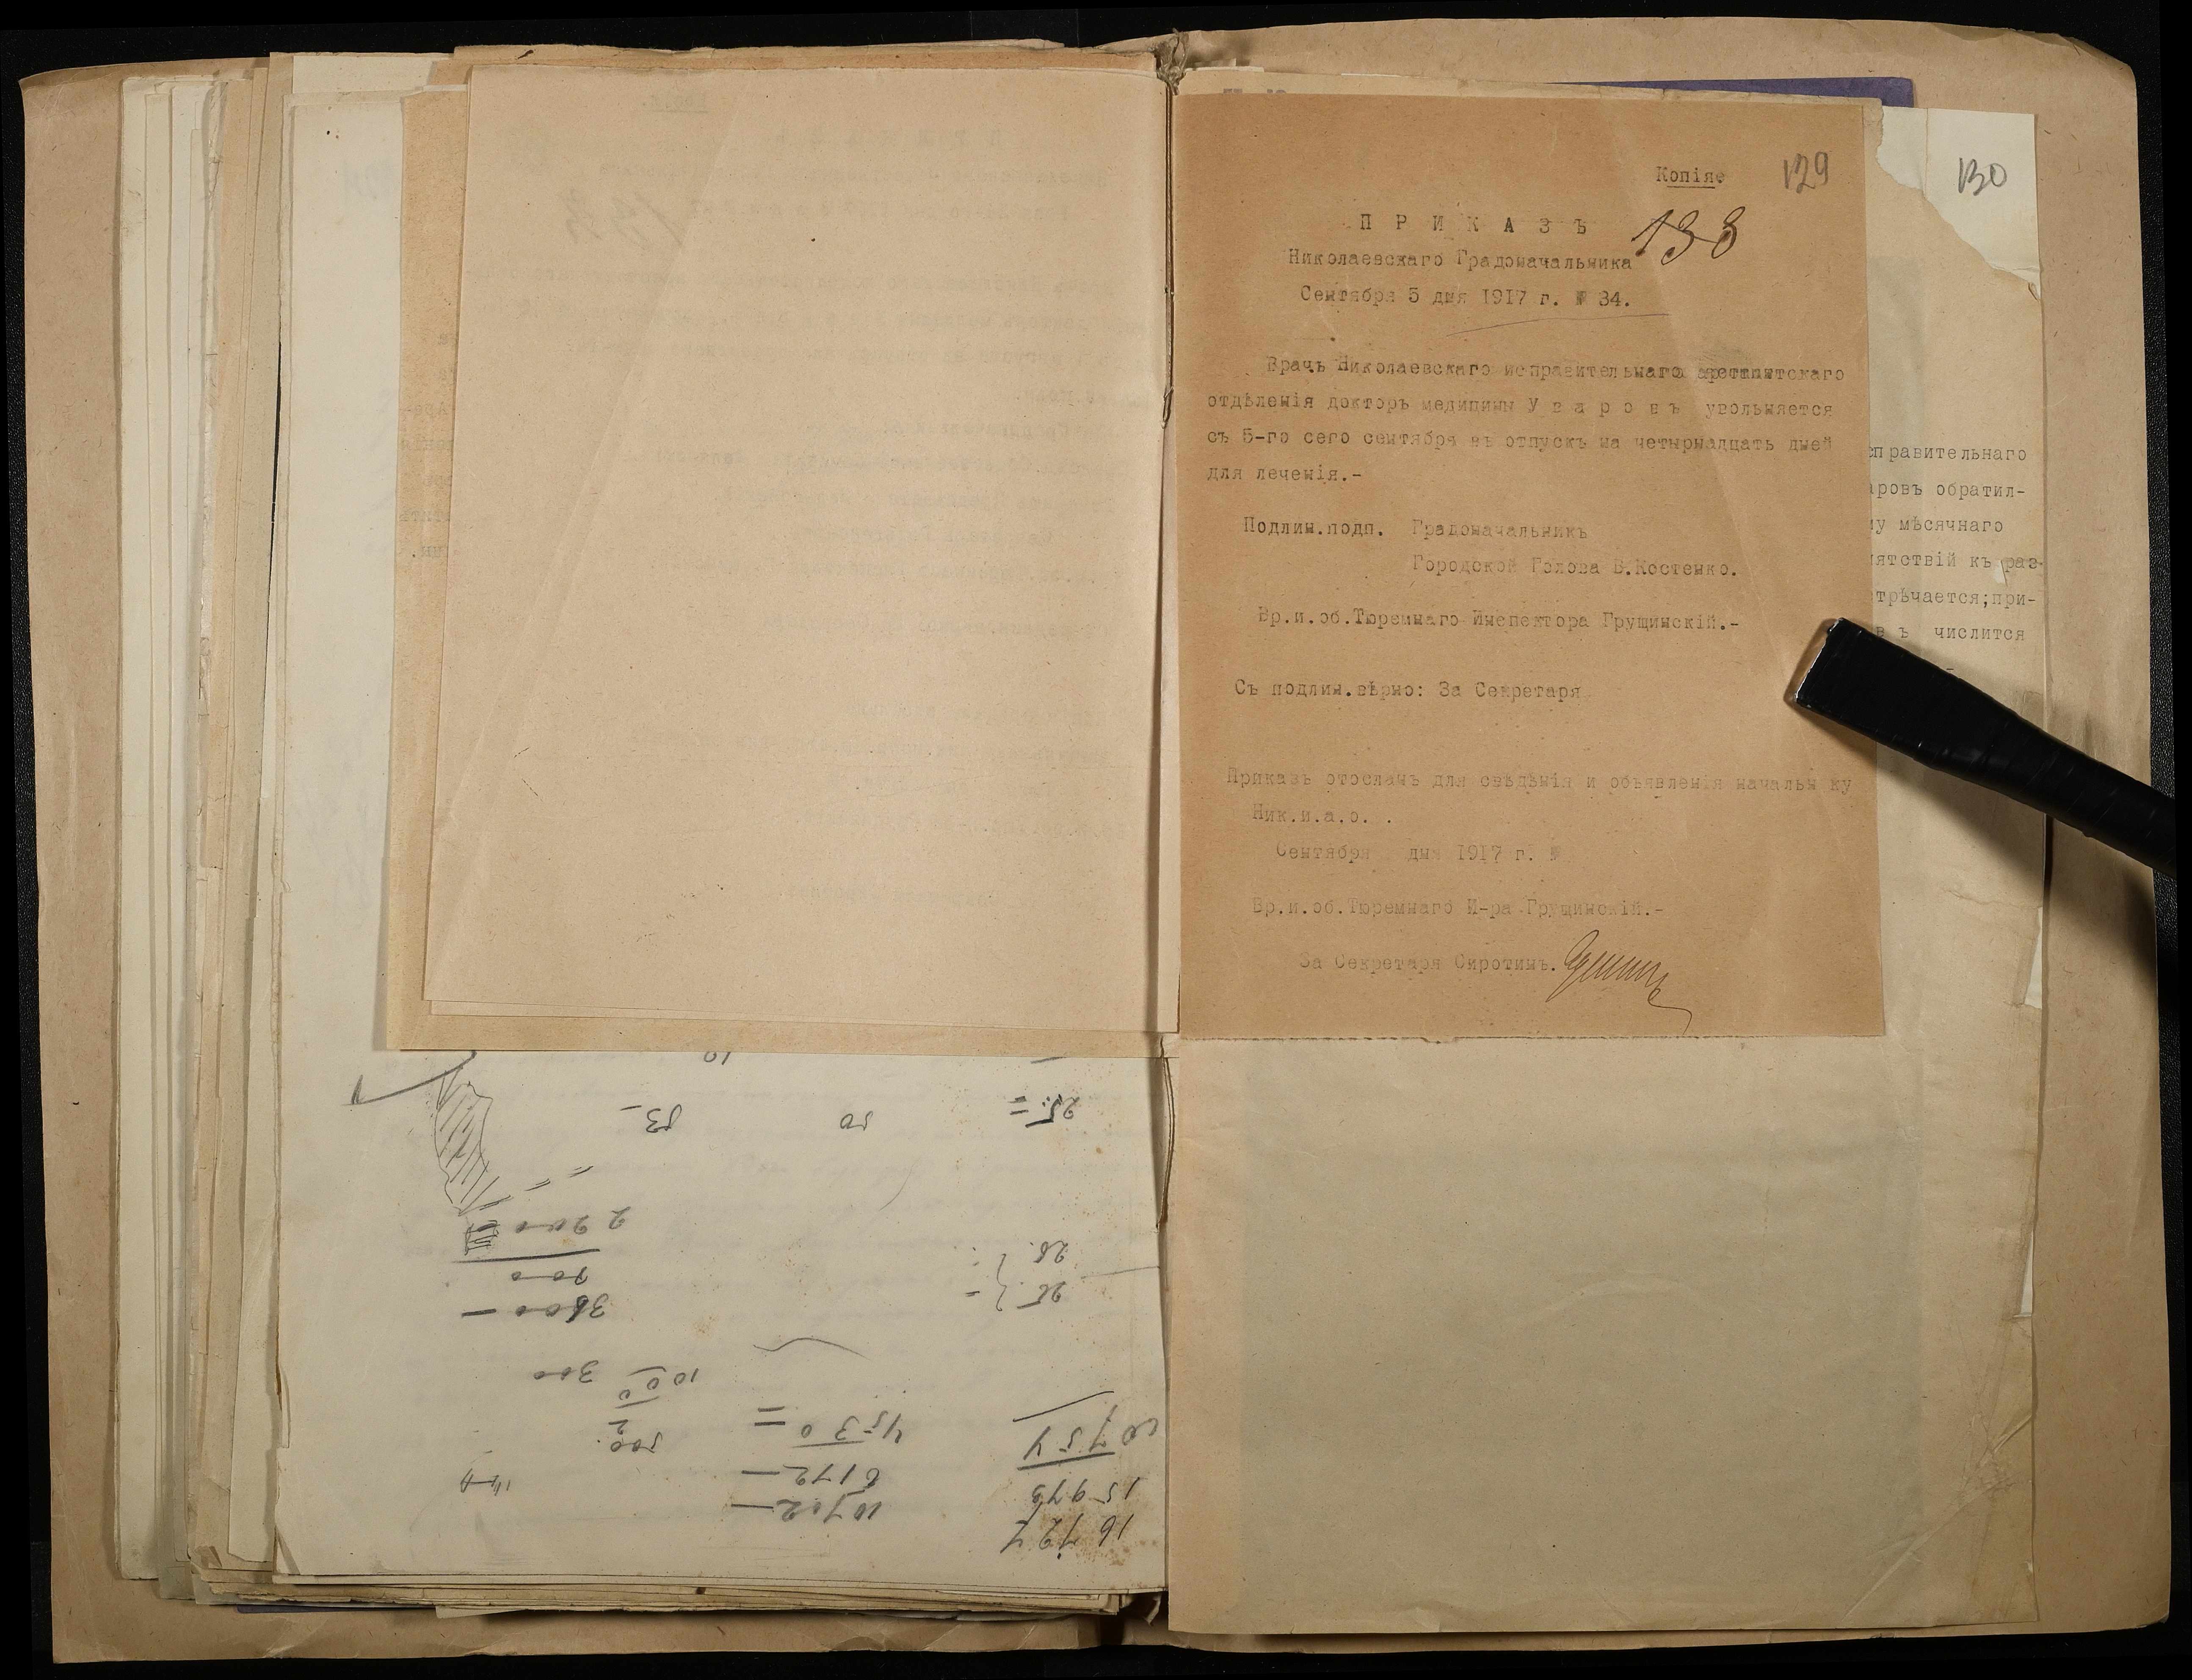 Копія.
129
130
П Р И К А З Ъ
133
Николаевскаго Градоначальника
Сентября 5 дня 1917 г. № 34.
Врачъ Николаевскаго исправительнаго арестантскаго
отдѣленія докторъ медицины У в а р о в ъ увольняется
съ 5-го сего сентября въ отпускъ на четырнадцать дней
для леченія.-
Подлин.подп. Градоначальникъ
Городской Голова В.Костенко.
Вр.и.об.Тюремнаго Инспектора Грущинскій.-
Съ подлин.вѣрно: За Секретаря
Приказъ отосланъ для свѣдѣнія и объявленія начальнику
Ник.и.а.о. .
Сентября дня 1917 г. №
Вр.и.об.Тюремнаго И-ра Грущинскій.-
За Секретаря Сиротинъ.
справительнаго
аровъ обратил-
му мѣсячнаго
пятствій къ раз-
трѣчается;при-
в ъ числится
25.=
50
53-
2900
700
3600 -
28.
25.
300
1000
500
4530 =
6172 -
10702 -
754
15973
16727